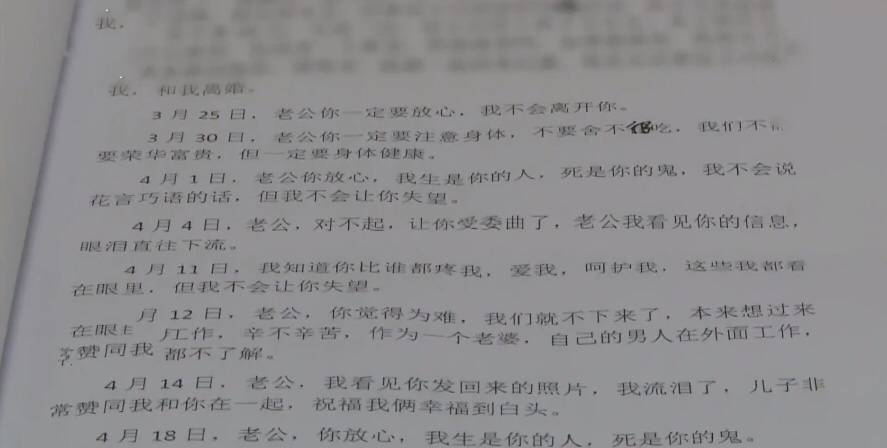 我，
我，和我离婚。
3月25日，老公你一定要放心，我不会离开你。
3月30日，老公你一定要注意身体，不要舍不得吃，我们不
要荣华富贵，但一定要身体健康。
4月1日，老公你放心，我生是你的人，死是你的鬼，我不会说
花言巧语的话，但我不会让你失望。
4月4日，老公，对不起，让你受委曲了，老公我看见你的信息，
眼泪直往下流。
4月11日，我知道你比谁都疼我，爱我，呵护我，这些我都看
在眼里，但我不会让你失望。
月12日，老公，你觉得为难，我们就不下来了，本来想过来
在眼 工作，辛不辛苦，作为一个老婆，自己的男人在外面工作，
常赞同我 都不了解。
4月14日，老公，我看见你发回来的照片，我流泪了，儿子非
常赞同我和你在一起，祝福我俩幸福到白头。
4月18日，老公，你放心，我生是你的人，死是你的鬼。